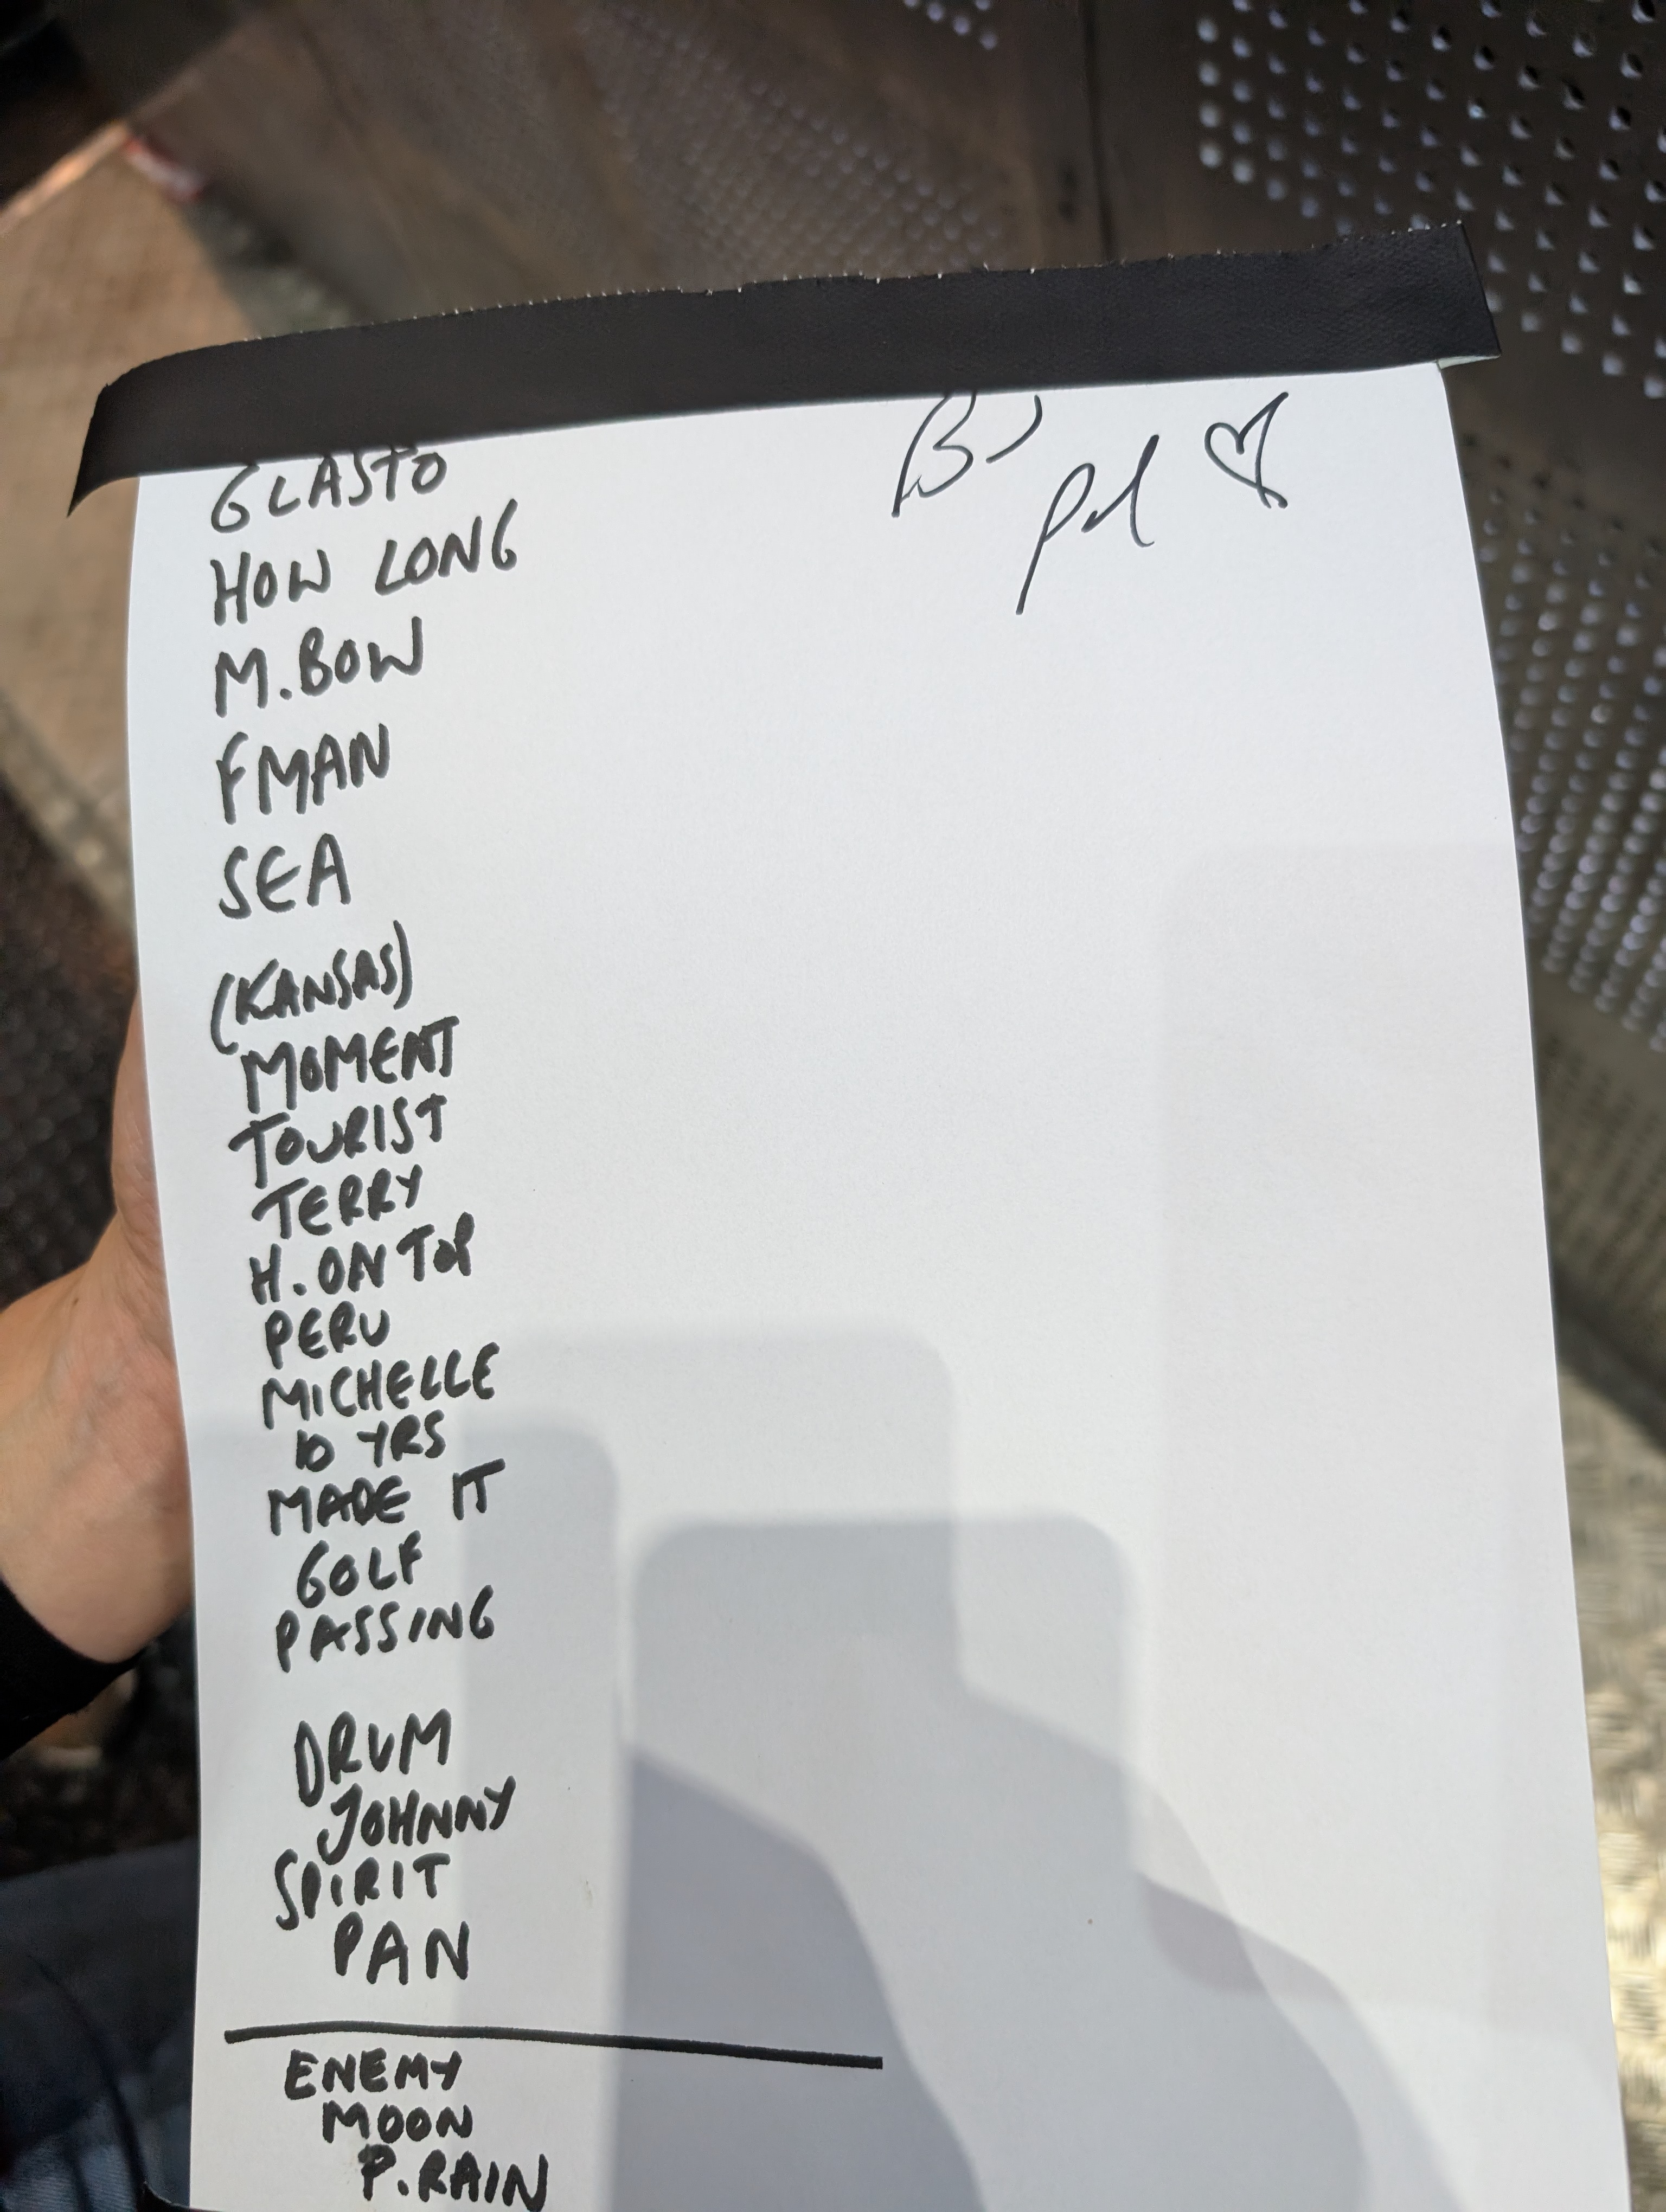 GLASTO
HOW LONG
M.BOW
FMAN
SEA
(KANSAS)
MOMENT
TOURIST
TERRY
H. ON TOP
PERU
MICHELLE
10 YRS
MADE IT
GOLF
PASSING
DRUM
JOHNNY
SPIRIT
PAN
ENEMY
MOON
P. RAIN